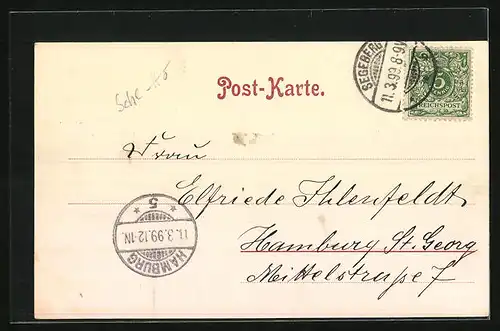 SEGEBERG
11.3.99.8-9V
5
REICHSPOST
Post-Karte.
Frau
Elfriede Ihlenfeldt
Hamburg St. Georg
Mittelstraße 7
* 5 *
11.3.99.12-1N.
HAMBURG